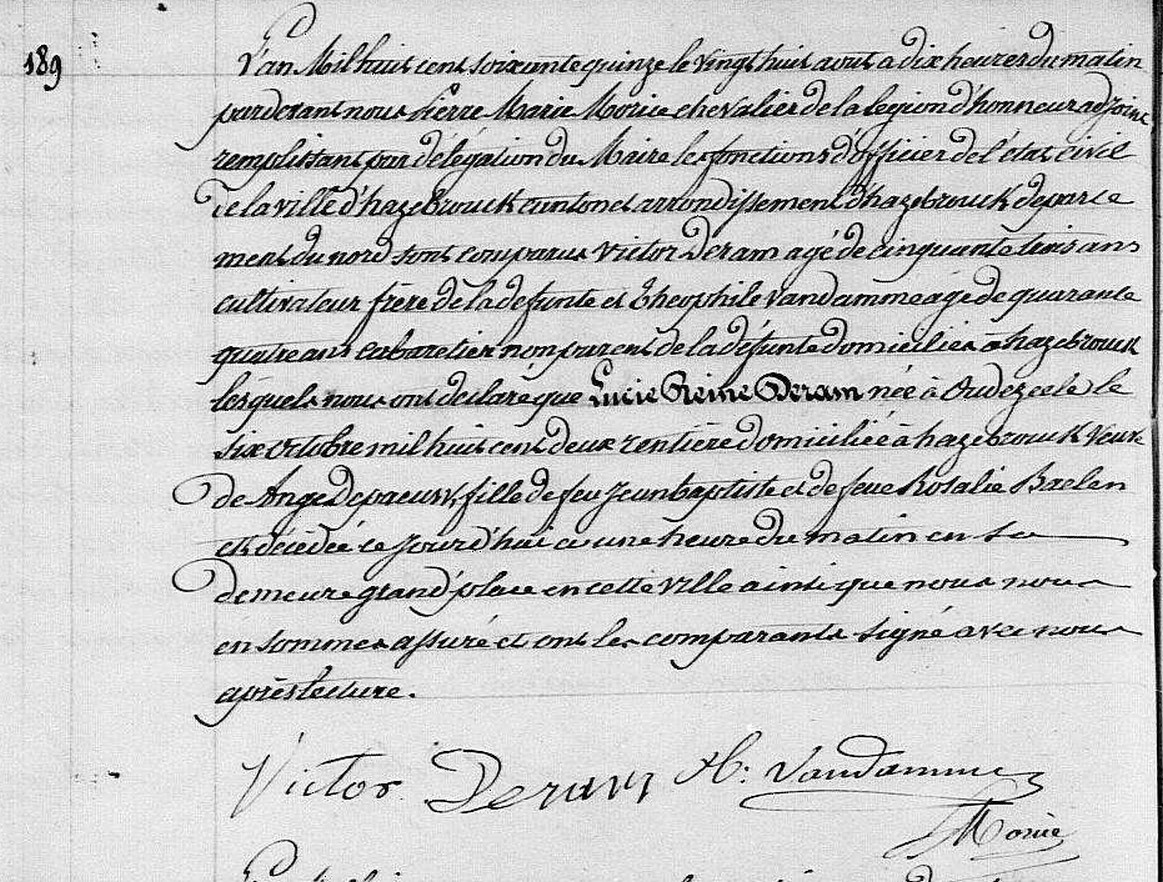 189
L'an Mil huit cent soixante quinze le vingt huit aout à dix heures du matin
pardevant nous Pierre Marie Morice chevalier de la légion d'honneur adjoint
remplissant par délégation du Maire les fonctions d'officier de l'état civil
de la ville d'hazebrouck canton et arrondissement d'hazebrouck departe
ment du nord sont comparus Victor Deram agé de cinquante trois ans
cultivateur frère de la defunte et Théophile Vandamme âgé de quarante
quatre ans cabaretier non parent de la défunte domiciliés à hazebrouck
lesquels nous ont déclaré que Lucie Reine Deram née à Oudezeele le
six Octobre mil huit cent deux rentière domiciliée à hazebrouck Veuve
de Ange Depraeuw, fille de feu Jean baptiste et de feue Rosalie Baelen
est décédée ce jourd'hui à une heure du matin en sa
demeure grand'place en cette ville ainsi que nous nous
en sommes assuré et ont les comparants signé avec nous
après lecture.
Victor Deram Th: Vandamme
Morice